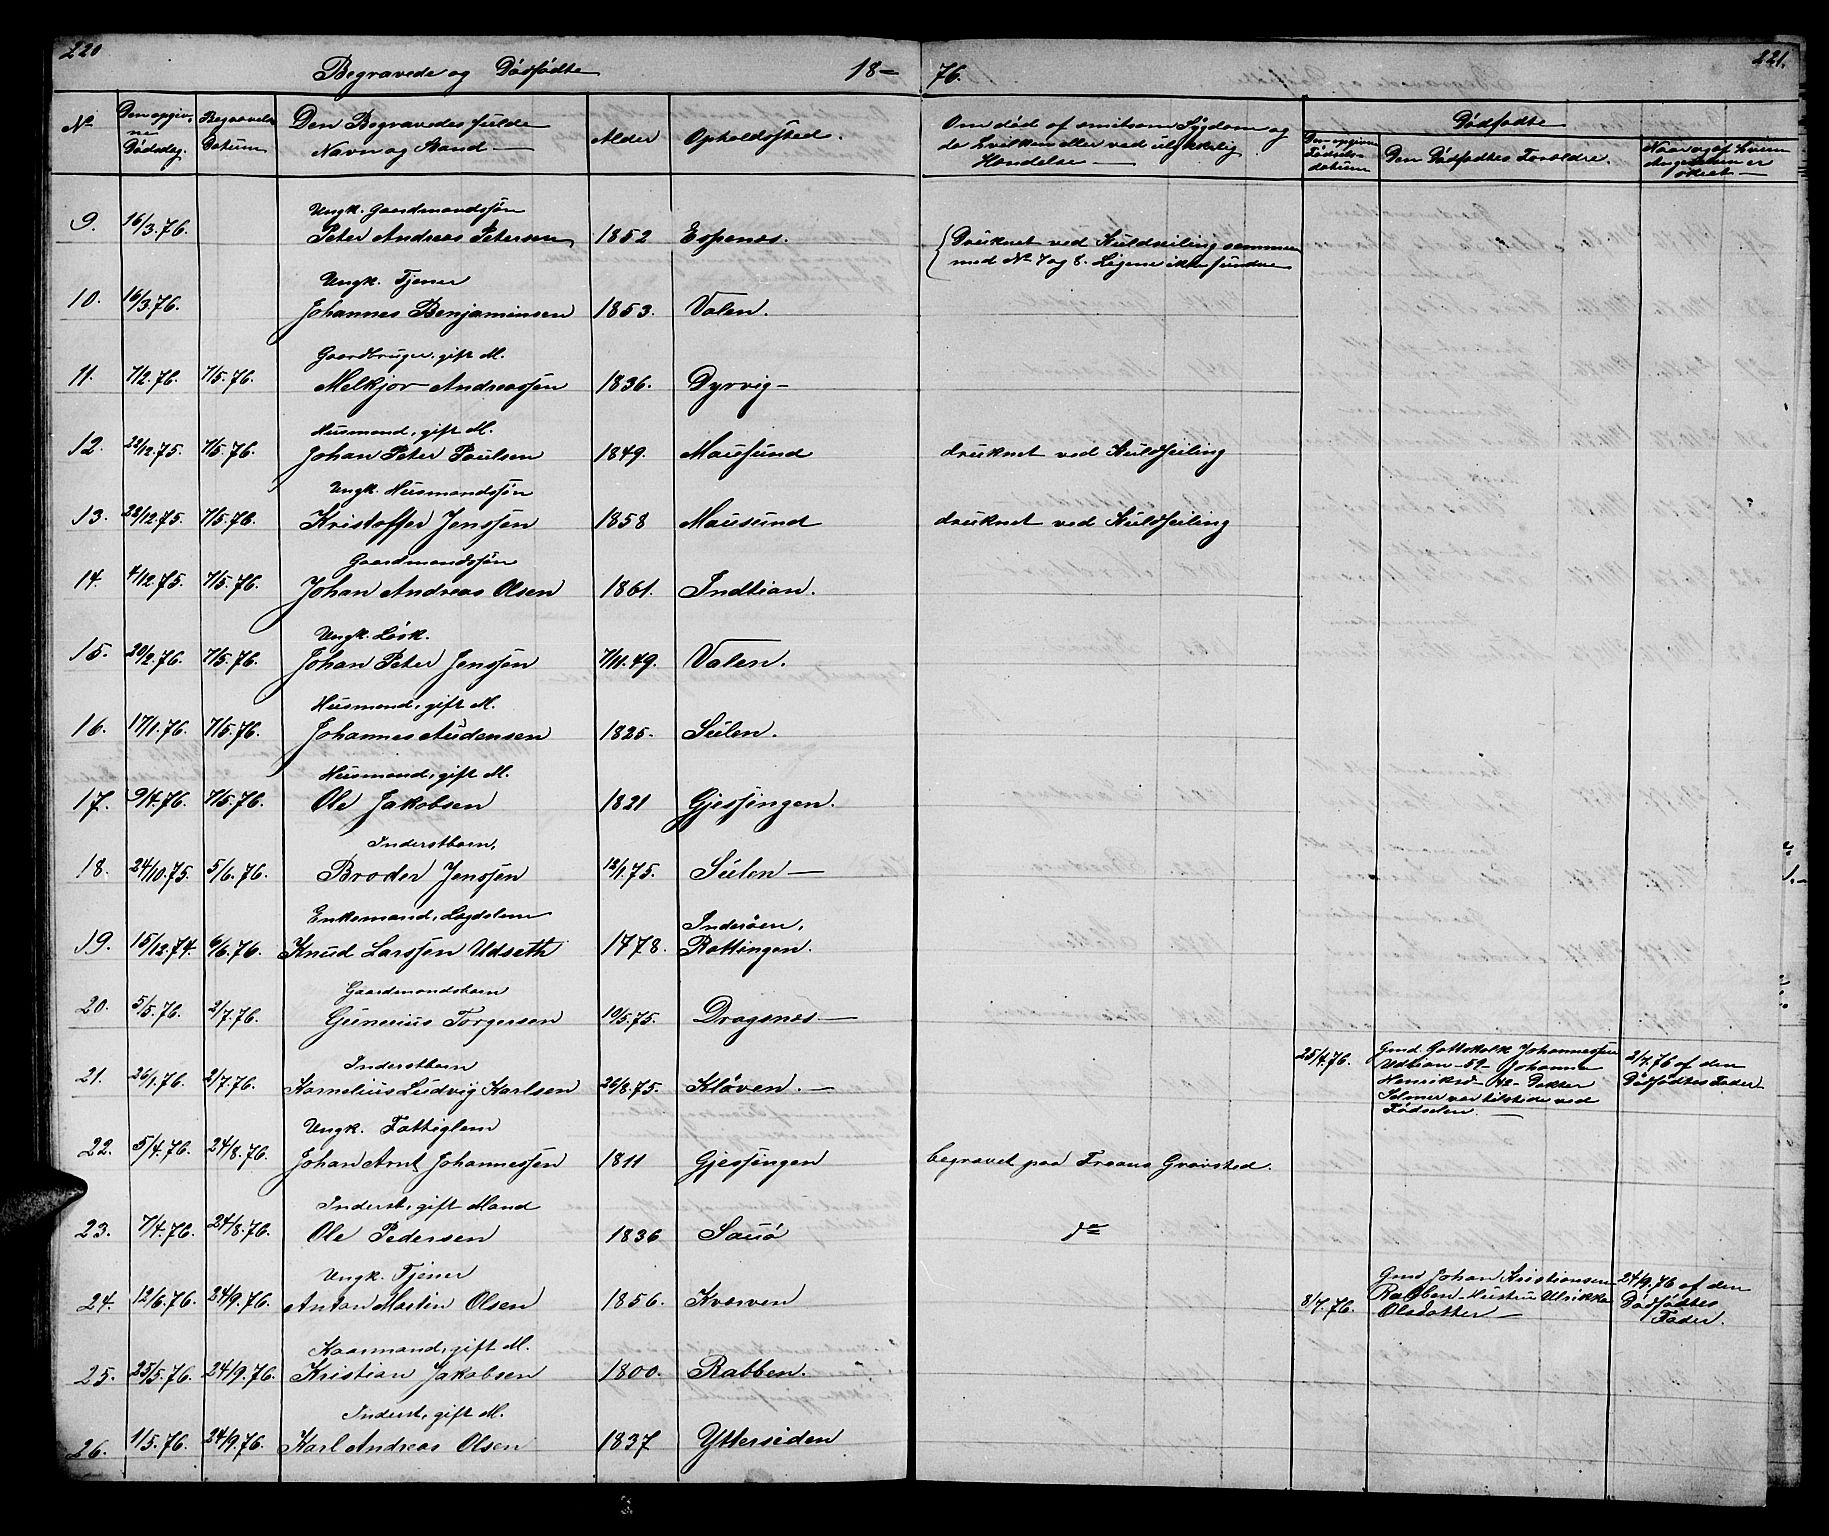 220
Begravede og Dødfødte 18-
No
Den opgiv-
ne
Dødsdag.
Begravelse
Datum
Den Begravedes fulde
Navn og Stand.
Alder
Opholdssted.
9. 16/3.76. Ungk. Gaardmandssøn
Peter Andreas Petersen 1852 Espenes.
10. 16/3.76. Ungk. Tjener
Johannes Benjaminsen 1853. Valen.
11. 7/2.76. 7/5.76. Gaardbruger, gift M.
Melkjor Andreassen 1836. Dyrvig-
12. 22/12.75. 7/5.76. Husmand, gift M.
Johan Peter Paulsen 1849. Mausund
13. 22/12.75. 7/5.76. Ungk. Husmandssøn
Kristoffer Jenssen 1858 Mausund
14. 4/12.75. 7/5.76. Gaardmandssøn
Johan Andreas Olsen 1861. Indtian.
15. 20/2.76. 7/5.76. Ungk. Løsk.
Johan Peter Jenssen 7/11.49. Valen.
16. 17/1.76. 7/5.76. Husmand, gift M.
Johannes Audensen 1825. Sulen.
17. 9/4.76. 7/5.76. Husmand, gift M.
Ole Jakobsen 1821 Gjessingen.
18. 24/10.75. 5/6.76. Inderstbarn,
Broder Jenssen 12/1.75. Sulen—
19. 15/12.74. 6/6.76. Enkemand, Lægdslem
Knud Larssen Udseth 1778. Inderøen,
Rottingen.
20. 5/5.76. 2/7.76. Gaardmandsbarn
Gunerius Torgersen 10/5.75. Dragsnes—
21. 26/1.76. 2/7.76. Inderstbarn
Kornelius Ludvig Karlsen 26/8.75. Kløven.—
22. 5/4.76. 24/8.76. Ungk. Fattiglem
Johan Arnt Johannessen 1811 Gjessingen
23. 7/4.76. 24/8.76. Inderst, gift Mand
Ole Pedersen 1836 Sauø
24. 12/6.76. 24/9.76. Ungk. Tjener
Anton Martin Olsen 1856. Kverven
25. 25/5.76. 24/9.76. Kaarmand, gift M.
Kristian Jakobsen 1800. Rabben.
26. 1/5.76. 24/9.76. Inderst, gift M.
Karl Andreas Olsen 1837 Yttersiden
76. 221.
Om død af smitsom Sygdom og
da hvilken eller ved ulykkelig
Hændelse —
Dødfødte
Den opgivne
Fødsels-
datum
Den Dødfødtes Forældre.
Naar og af hvem
Angivelsen er
skeet —
Druknet ved Kuldseiling sammen
med No 7 og 8. Ligene ikke fundne
druknet ved Kuldseiling
druknet ved Kuldseiling
25/4.76. Gmd. Gottskalk Johannessen
Udtian -59- Johanna
Henriksd -42- Doktor
Solmer var tilstede ved
Fødselen.—
2/7.76 af den
Dødfødtes Fader
begravet paa Froans Gravsted.
do
8/7.76. Gmd Johan Kristiansen
Rabben Hustru Ulrikka
Olsdatter—
24/9.76 af den
Dødfødtes
Fader.